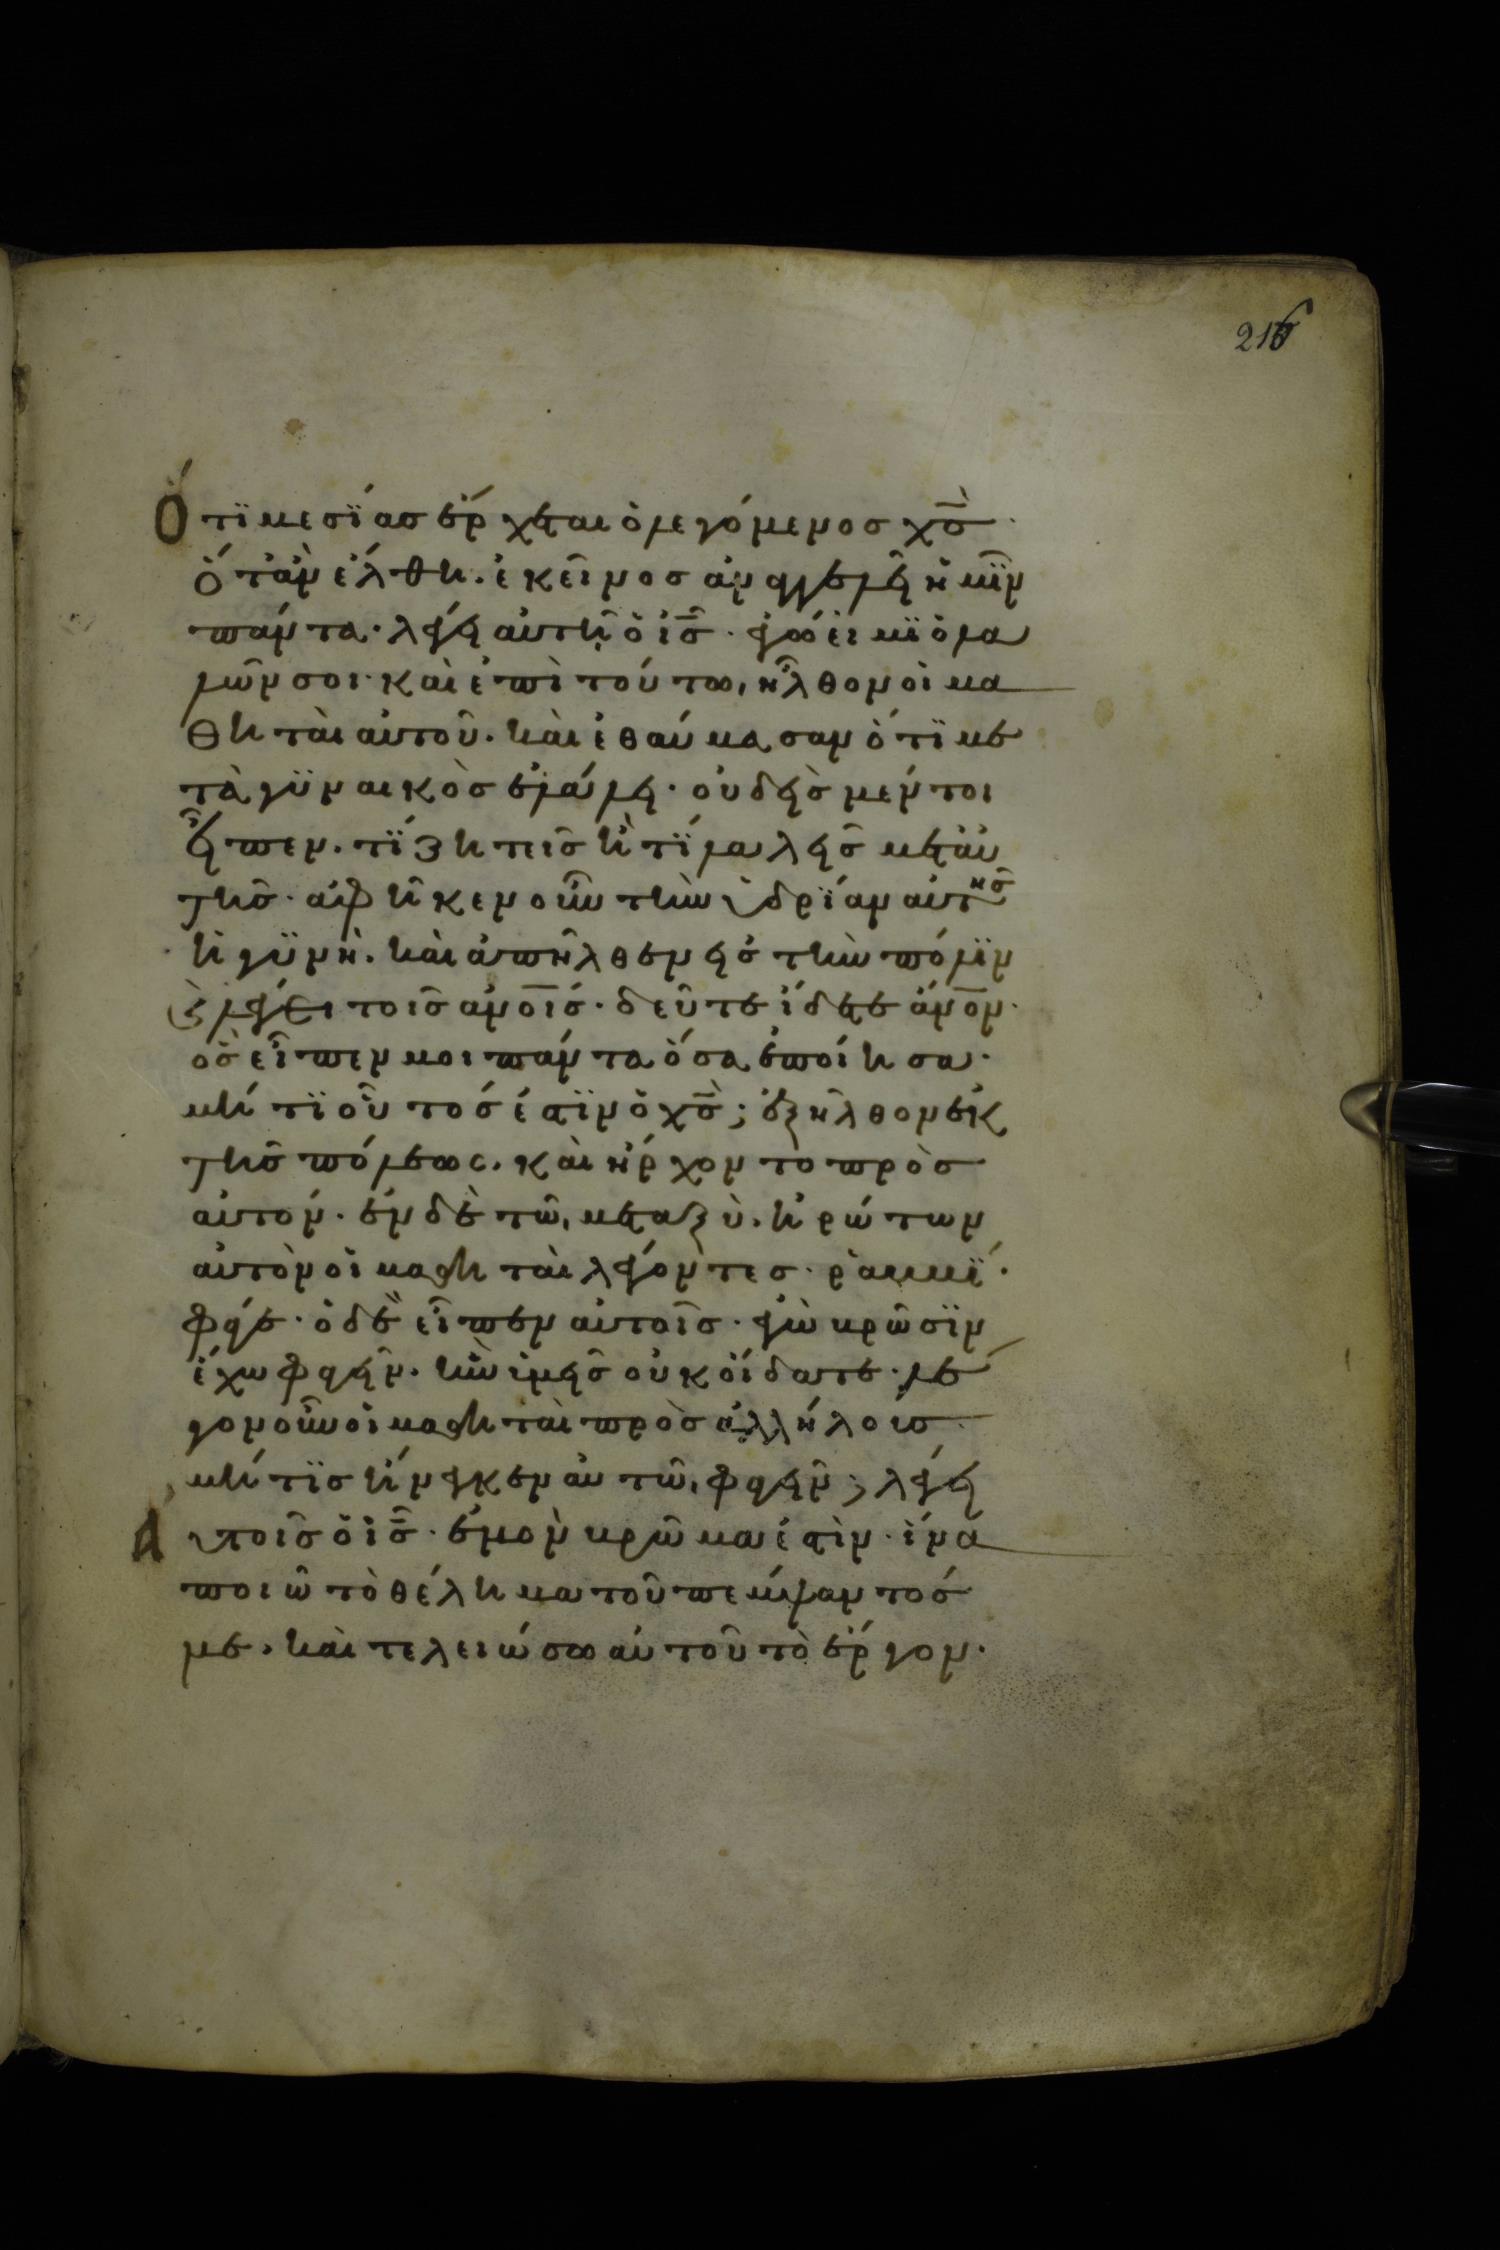 216
Ὅτϊ μεσΐασ ἔρχεται ὁ λεγόμενοσ χ̅σ̅·
ὅτἂν ἔλθη. ἐκεῖνοσ ἀναγγελεῖ ἡμῖν
πάντα· λέγει αὐτῆ ὁ ι̅σ̅· ἐγώ εἰμϊ ὁ λα
λῶν σοι· καὶ ἐπὶ τούτω, ἦλθον οἱ μα
θηταὶ αὐτοῦ. καὶ ἐθαύμασαν ὅτϊ με
τὰ γϋναικὸσ ἐλάλει· οὐδεὶσ μέντοι
εἶπεν. τΐ ζητεῖσ ἢ τΐ λαλεῖσ μετ αὐ
τῆσ· ἀφῆκεν οὖν τὴν ὑδρΐαν αὐτῆσ
ἡ γϋνὴ. καὶ ἀπῆλθεν εἰσ τὴν πόλϊν
καὶ λέγει τοῖσ α̅ν̅ο̅ι̅σ̅· δεῦτε ἴδετε α̅ν̅ο̅ν̅·
ὃσ εἶπεν μοι πάντα ὅσα ἐποίησα·
μήτϊ οὗτοσ ἐστϊν ὁ χ̅σ̅; ἐξῆλθον ἐκ
τῆσ πόλεως. καὶ ἤρχοντο πρὸσ
αὐτόν· ἐν δὲ τῶ, μεταξὺ. ἠρώτων
αὐτὸν οἱ μαθηταὶ λέγοντεσ· ῥαββΐ·
φάγε· ὁ δὲ εἶπεν αὐτοῖσ· ἐγὼ βρῶσϊν
ἔχω φαγεῖν. ἣν ὑμεῖσ οὐκ οἴδατε· λέ
γον οὖν οἱ μαθηταὶ πρὸσ ἀλλήλοισ·
μήτϊσ ἤνεγκεν αὐτῶ, φαγεῖν; λέγει
Αὐτοῖσ ὁ ι̅σ̅· ἐμὸν βρῶμα ἐστὶν· ἵνα
ποιῶ τὸ θέλημα τοῦ πέμψαντόσ
με. καὶ τελειώσω αὐτοῦ τὸ ἔργον·